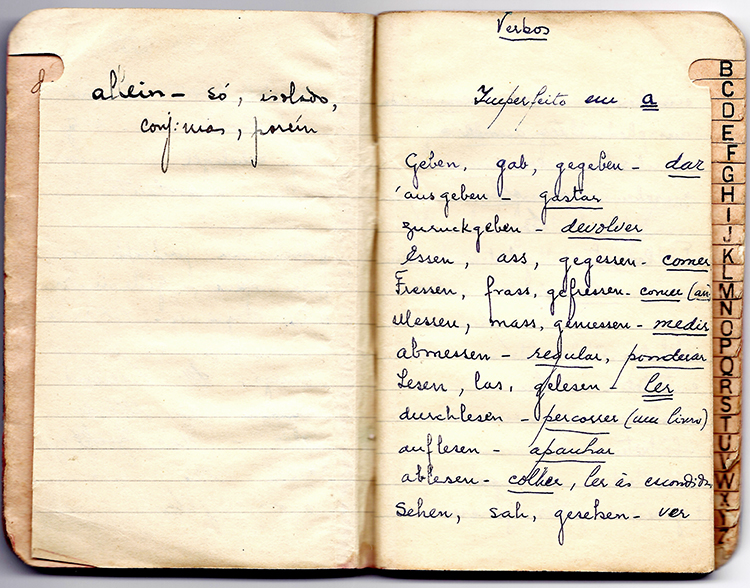 allein – só, isolado,
conj: mas, porém
Verbos
Imperfeito em a
Geben, gab, gegeben – dar
ausgeben – gastar
zuruckgeben – devolver
Essen, ass, gegessen – comer
Fressen, frass, gefressen – comer (ani
Messen, mass, gemessen – medir
abmessen – regular, ponderar
Lesen, las, gelesen – ler
durchlesen – percorrer (um livro)
auflesen – apanhar
ablesen – colher, ler às escondidas
Sehen, sah, gesehen – ver
B
C
D
E
F
G
H
I
J
K
L
M
N
O
P
Q
R
S
T
U
V
W
X
Y
Z